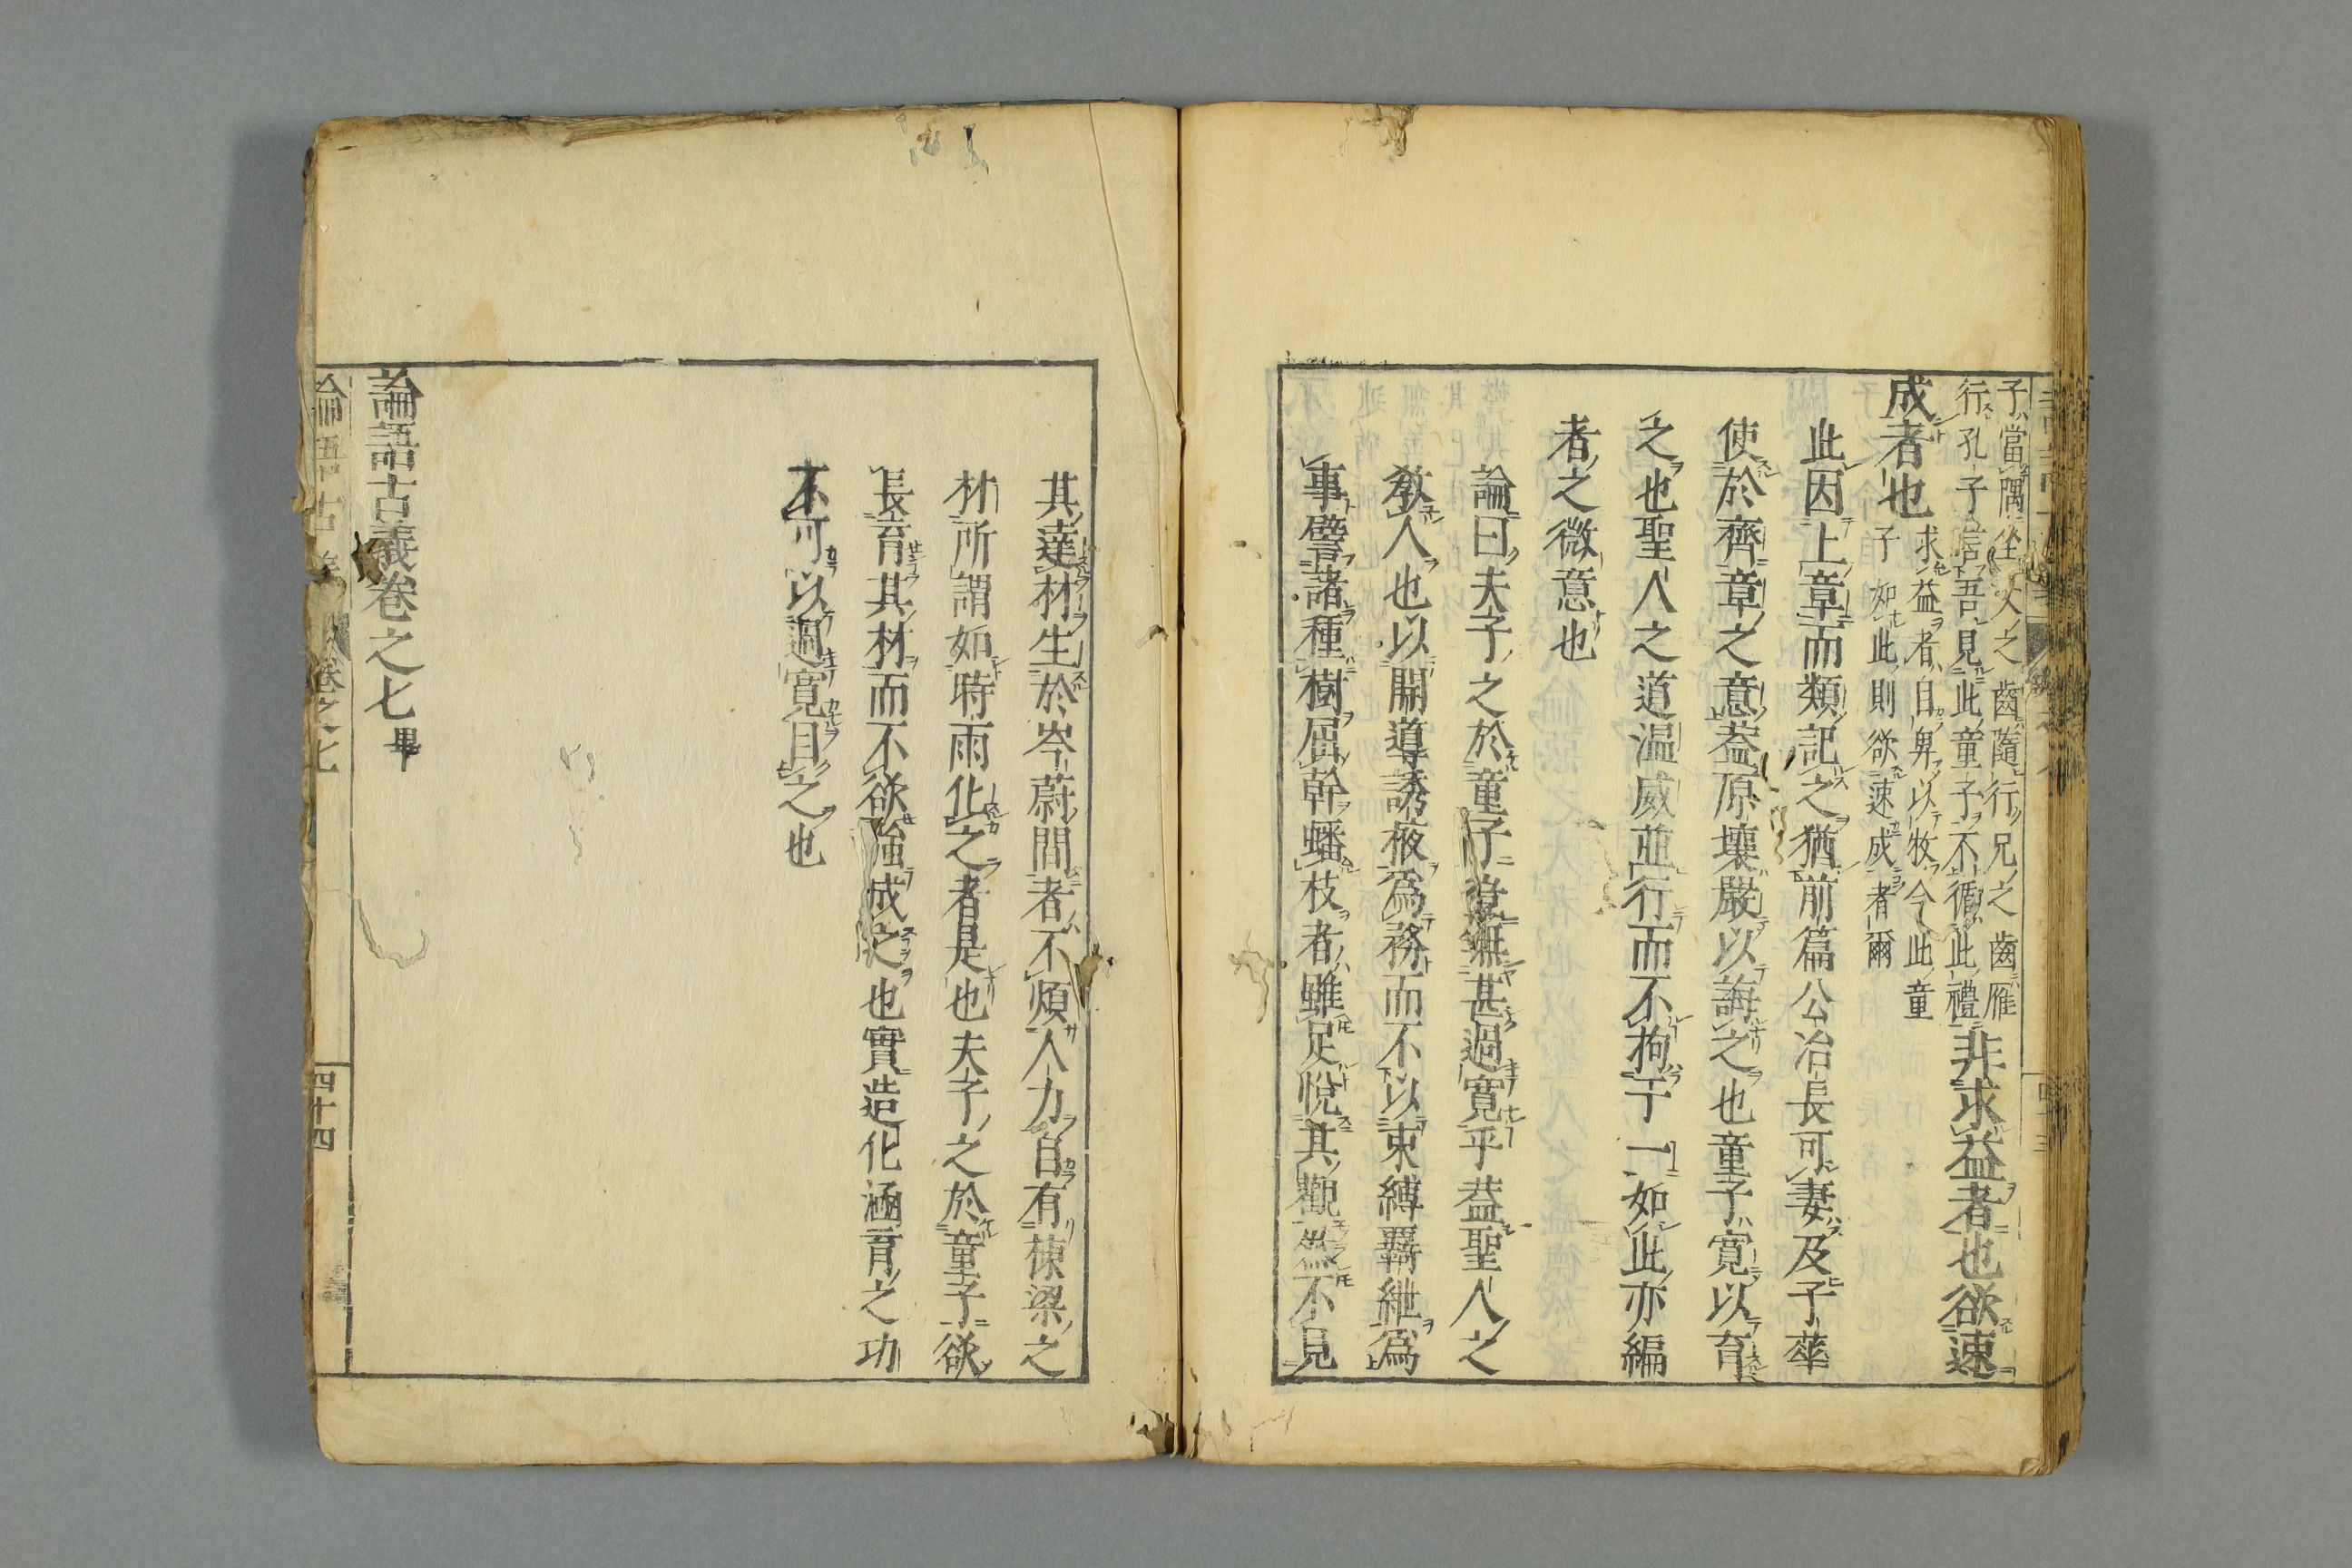 子當隅坐父之齒隨行兄之齒雁
行孔子言吾見此童子不循此禮
非求益者也欲速
成者也
求益者自卑以牧今此童
子如此則欲速成者爾
此因上章而類記之猶前篇公冶長可妻及子華
使於齊章之意蓋原壤嚴以誨之也童子寬以育
之也聖人之道温威並行而不拘于一如此亦編
者之微意也
論曰夫子之於童子豈無甚過寛乎葢聖人之
教人也以開導誘掖爲務而不以束縛羇紲爲
事譬諸種樹屈幹蟠枝者雖足悅其觀然不見
其達材生於岑蔚間者不煩人力自有棟梁之
材所謂如時雨化之者是也夫子之於童子欲
長育其材而不欲強成之也實造化涵育之功
不可以過寛目之也
論語古義卷之七畢
論語古義 卷之七 四十四